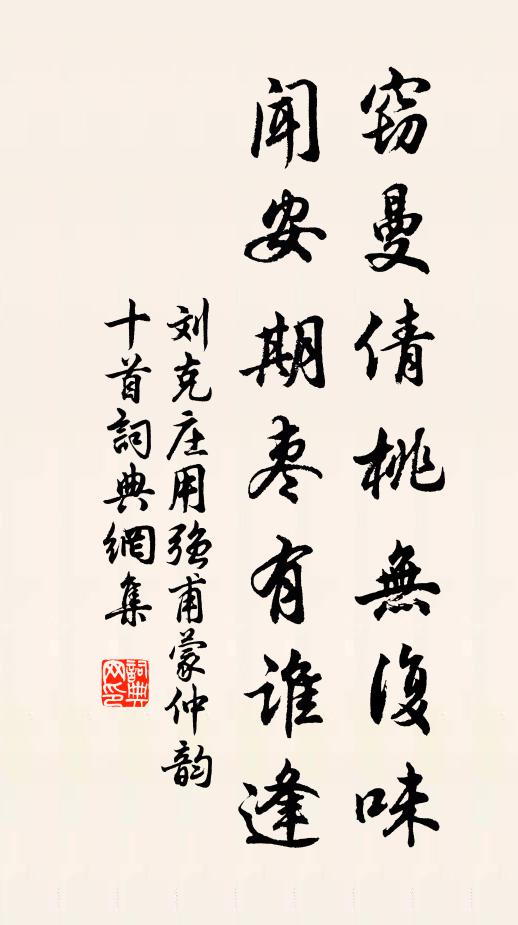 窃曼倩桃無復味
聞安期枣有谁逢
刘克庄用強甫蒙仲韵
十首詞典網集
詞典网印